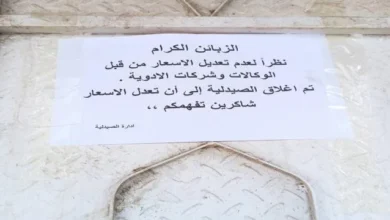 الزبائن الكرام
نظراً لعدم تعديل الاسعار من قبل
الوكالات وشركات الادوية .
تم اغلاق الصيدلية إلى أن تعدل الاسعار
شاكرين تفهمكم ،،
ادارة الصيدلية